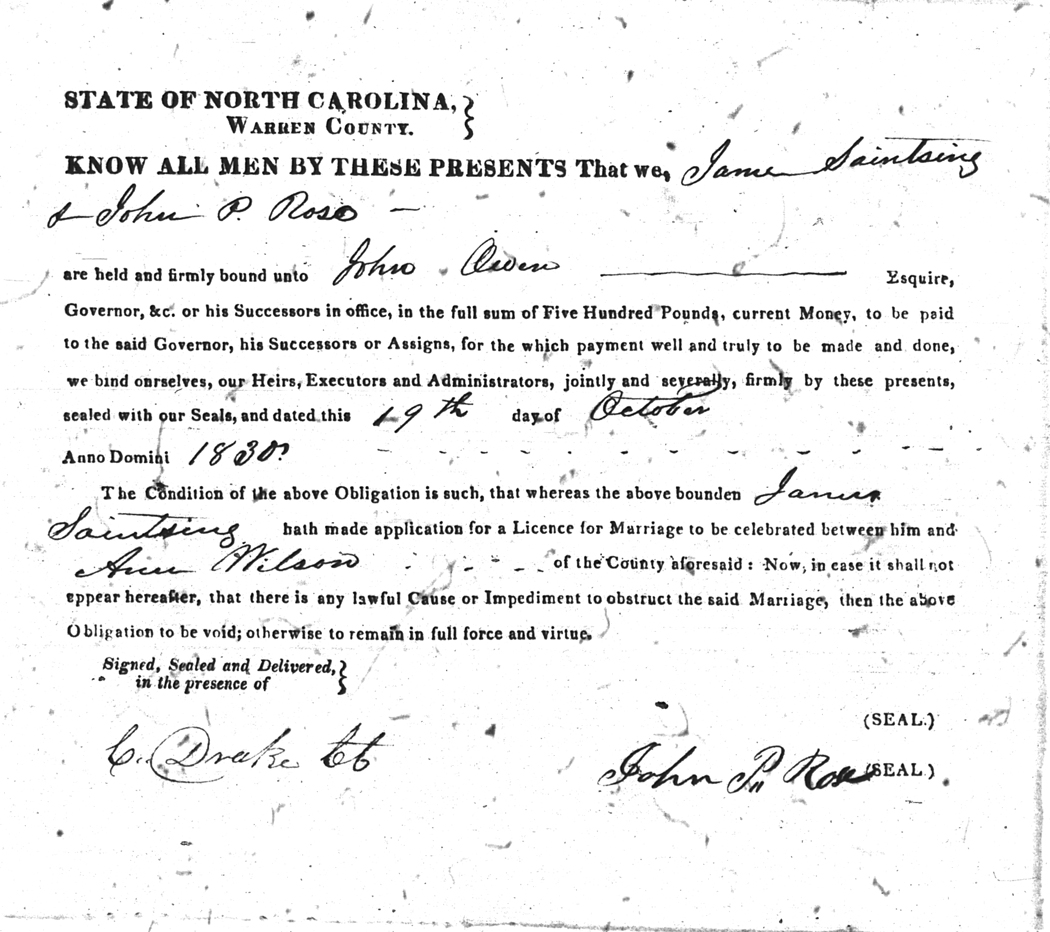 STATE OF NORTH CAROLINA,
WARREN COUNTY.
KNOW ALL MEN BY THESE PRESENTS That we, James Saintsing
& John P. Rose —
are held and firmly bound unto John Owen — Esquire,
Governor, &c. or his Successors in office, in the full sum of Five Hundred Pounds, current Money, to be paid
to the said Governor, his Successors or Assigns, for the which payment well and truly to be made and done,
we bind ourselves, our Heirs, Executors and Administrators, jointly and severally, firmly by these presents,
sealed with our Seals, and dated this 19th day of October
Anno Domini 1830.
The Condition of the above Obligation is such, that whereas the above bounden James
Saintsing hath made application for a Licence for Marriage to be celebrated between him and
Ann Wilson of the County aforesaid: Now, in case it shall not
appear hereafter, that there is any lawful Cause or Impediment to obstruct the said Marriage, then the above
Obligation to be void; otherwise to remain in full force and virtue.
Signed, Sealed and Delivered,
in the presence of
(SEAL.)
C. Drake Ct John P. Rose (SEAL.)